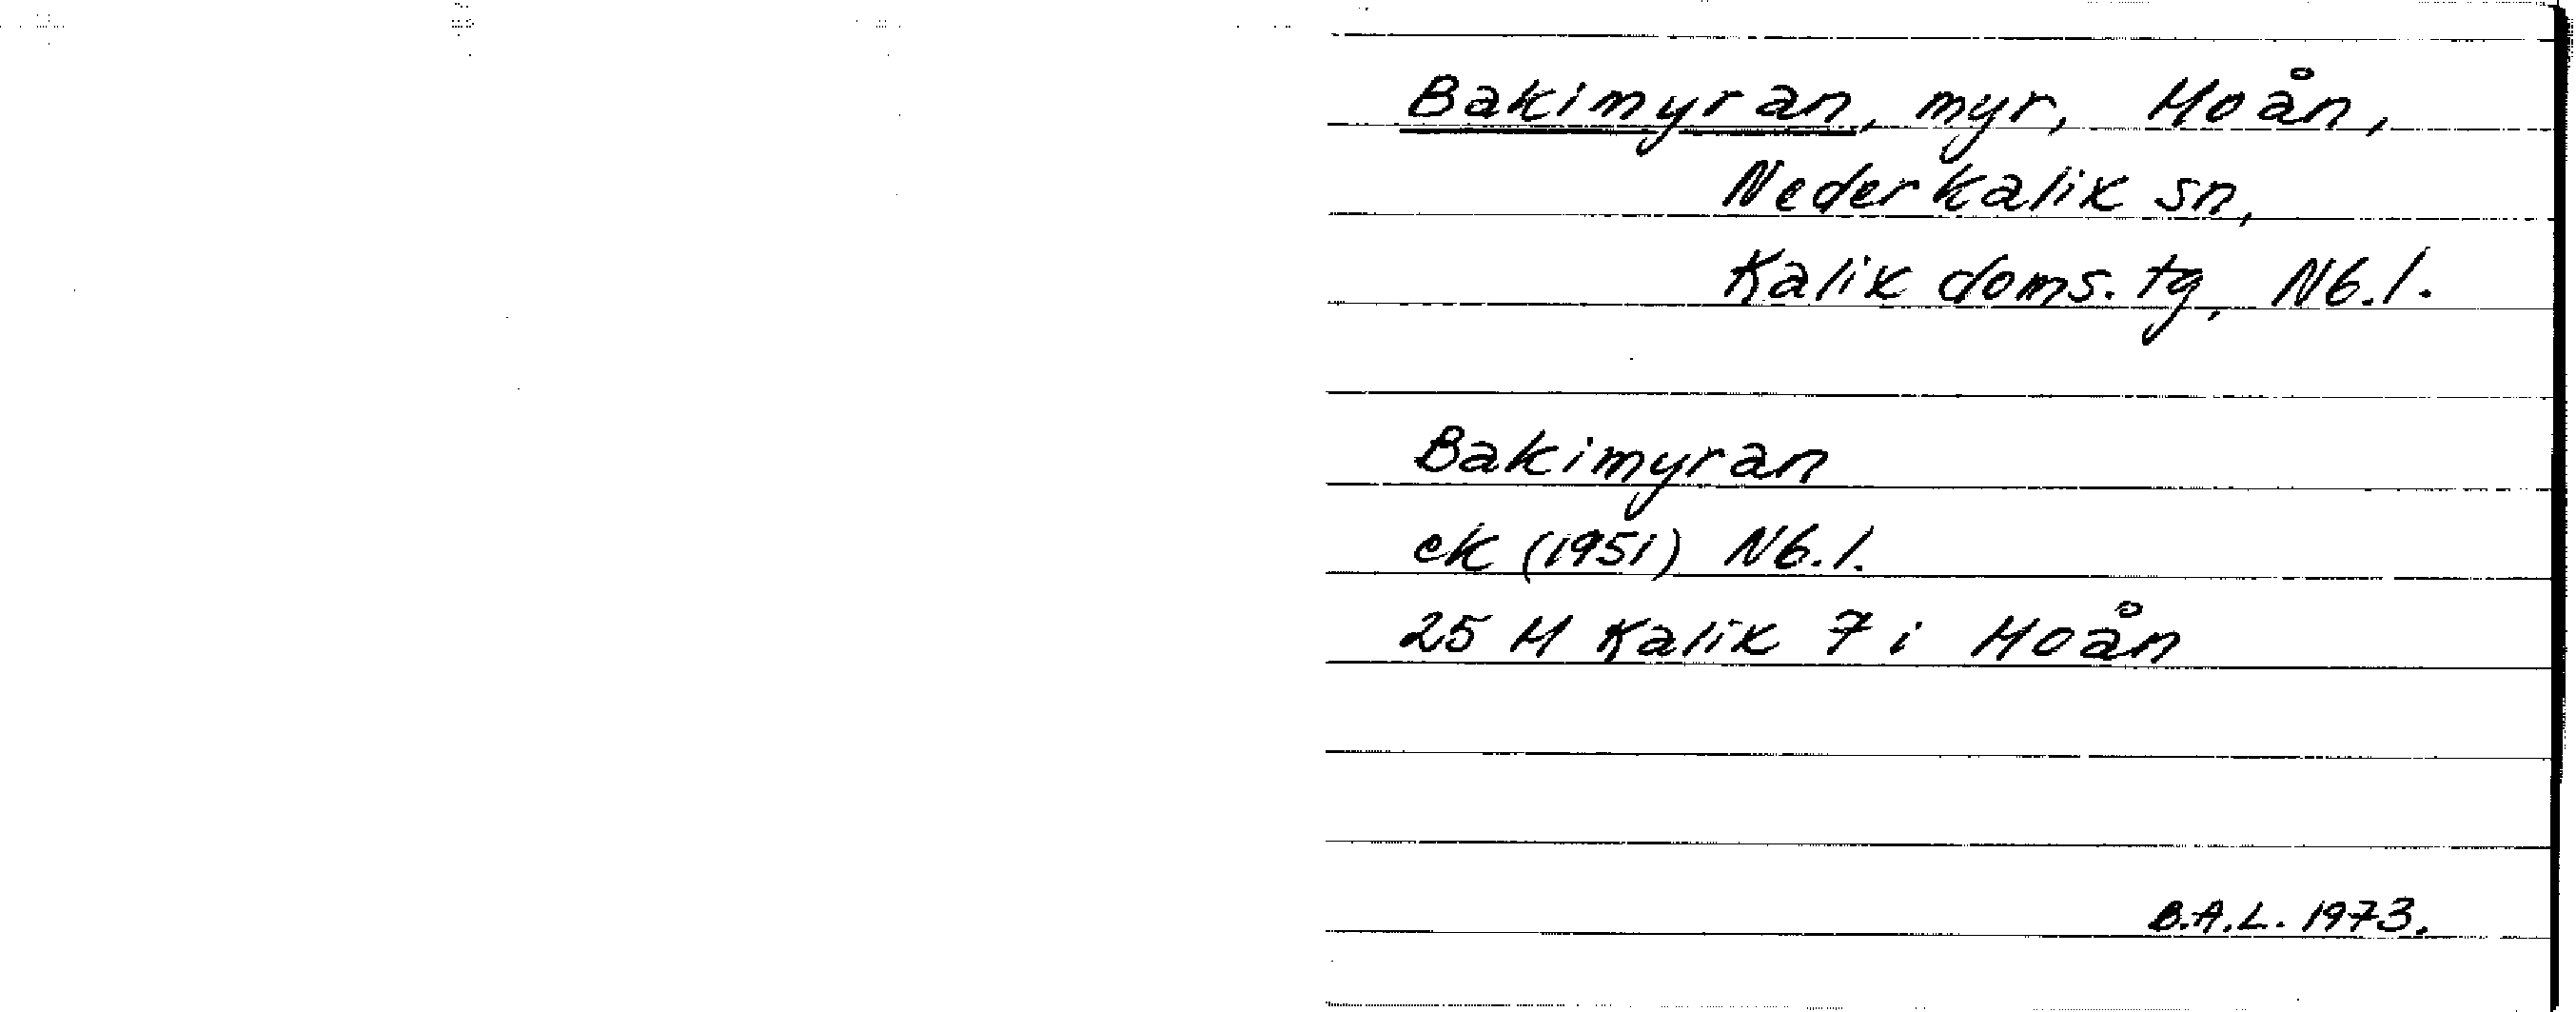 Bakimyran, myr, Moån,
Nederkalix sn,
Kalix doms. tg, Nb.l.
Bakimyran
ek (1951) Nb.l.
25 M Kalix 7 i Moån
B.A.L. 1973.